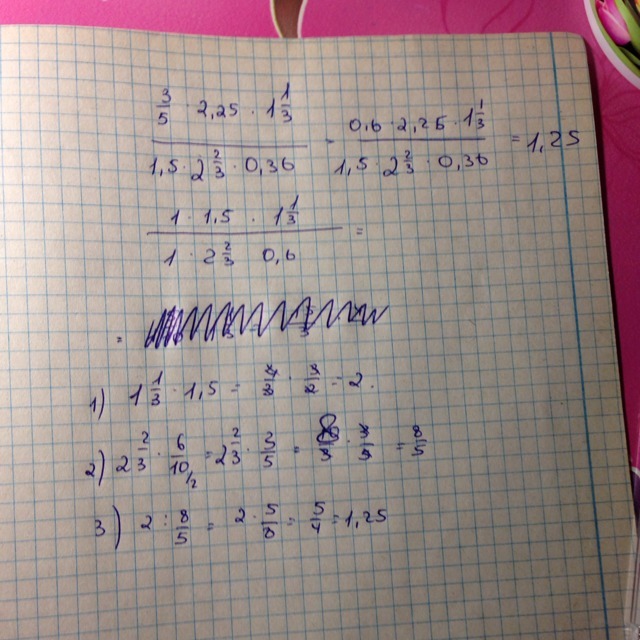 3/5 · 2,25 · 1 1/3 / 1,5 · 2 2/3 · 0,36 - 0,6 · 2,25 · 1 1/3 / 1,5 · 2 2/3 · 0,36 = 1,25
1 · 1,5 · 1 1/3 / 1 · 2 2/3 0,6 =
=
1) 1 1/3 · 1,5 = 4/3 · 3/2 = 2.
2) 2 2/3 · 6/10 = 2 2/3 · 3/5 = 8/3 · 3/5 = 8/5
3) 2 : 8/5 = 2 · 5/8 = 5/4 = 1,25